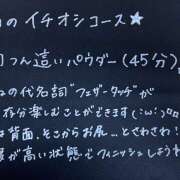 のイチオシコース★
つん這いパウダー(45分)
の代名詞"フェザータッチ"が
存分楽しむことができます(´ω`)
は背面、そこからお尻…とさわさわ!
が高い状態でフィニッシュしよう